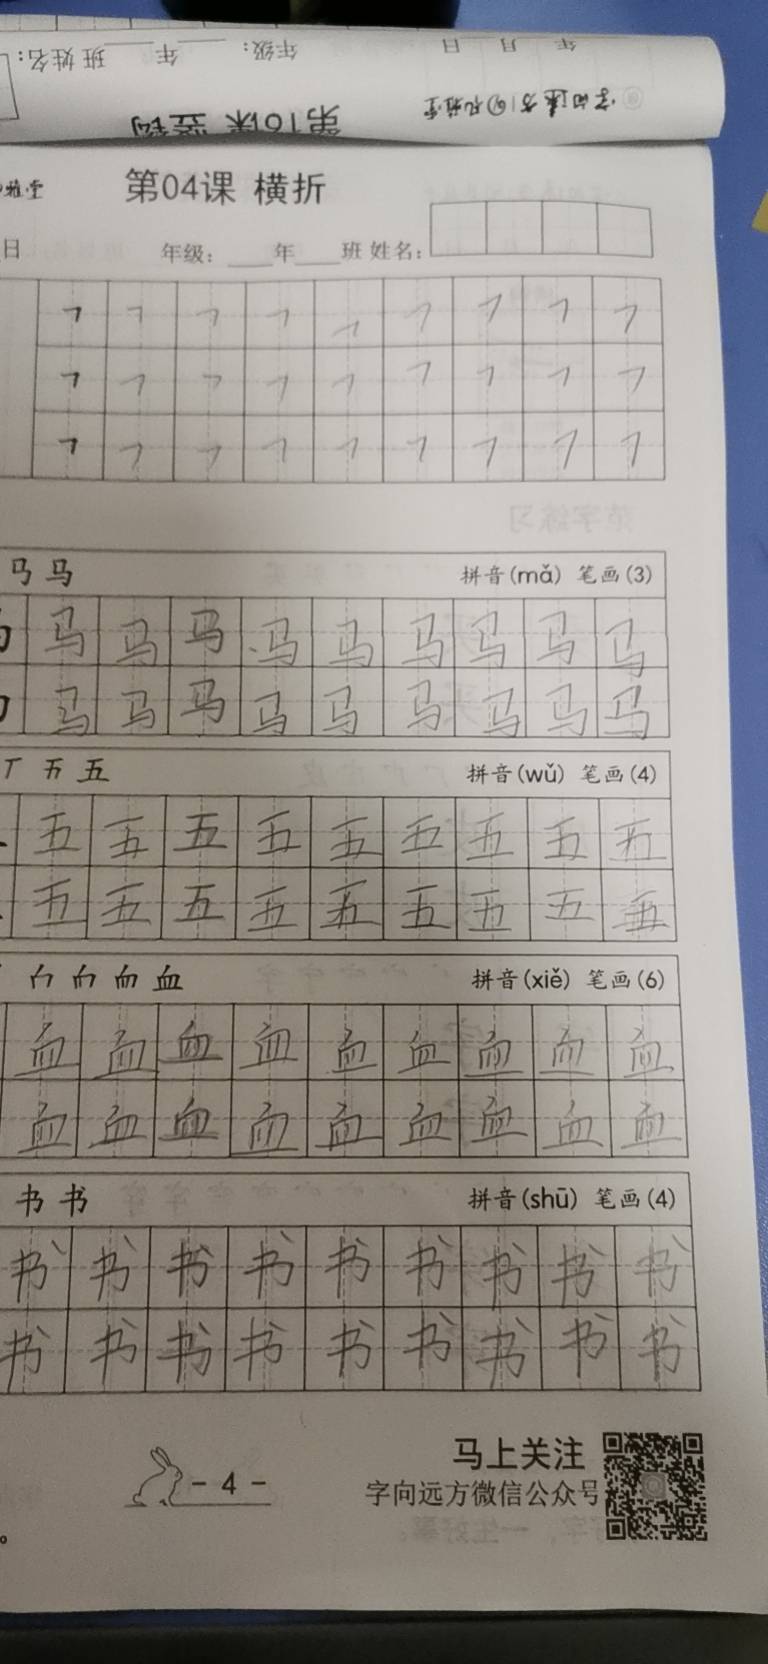 年 月 日 年级: 年 班 姓名:
第16课 竖钩
第04课 横折
日 年级: 年 班 姓名:
㇕ ㇕ ㇕ ㇕ ㇕ ㇕ ㇕ ㇕ ㇕
㇕ ㇕ ㇕ ㇕ ㇕ ㇕ ㇕ ㇕ ㇕
㇕ ㇕ ㇕ ㇕ ㇕ ㇕ ㇕ ㇕ ㇕
马 马 拼音(mǎ) 笔画(3)
马 马 马 马 马 马 马 马 马
马 马 马 马 马 马 马 马 马
丅 五 五 拼音(wǔ) 笔画(4)
五 五 五 五 五 五 五 五 五
五 五 五 五 五 五 五 五 五
血 拼音(xiě) 笔画(6)
血 血 血 血 血 血 血 血 血
血 血 血 血 血 血 血 血 血
书 书 拼音(shū) 笔画(4)
书 书 书 书 书 书 书 书 书
书 书 书 书 书 书 书 书 书
- 4 -
马上关注
字向远方微信公众号
。